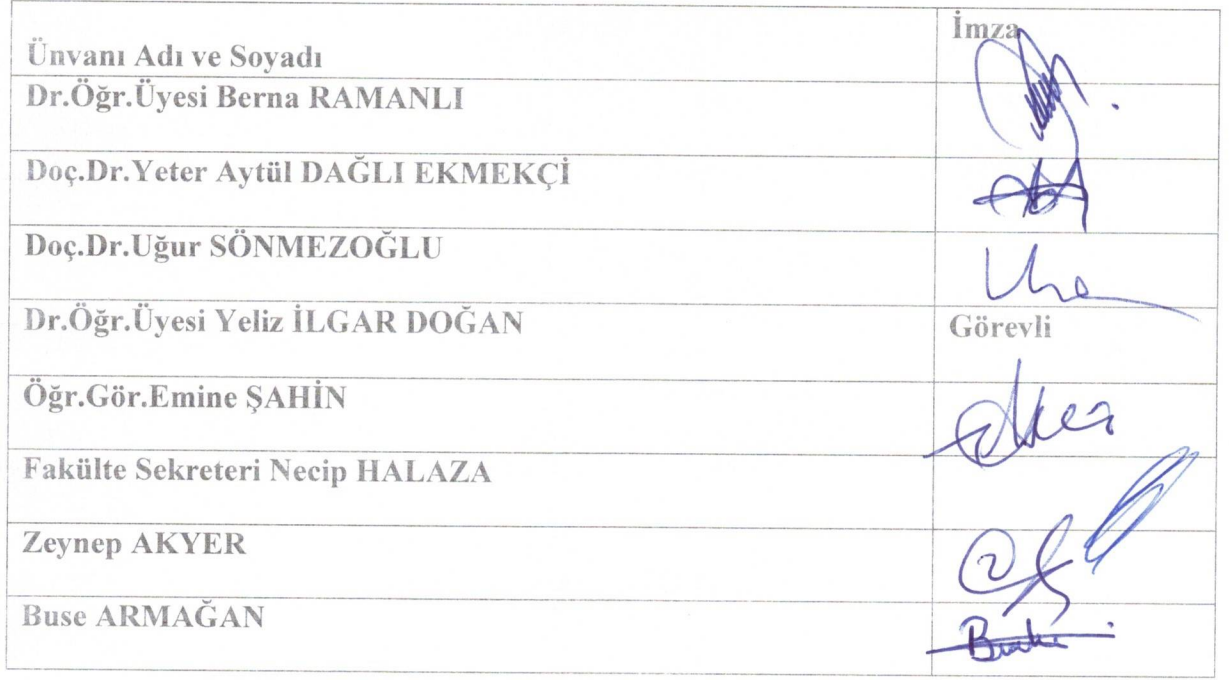 İmza
Ünvanı Adı ve Soyadı
Dr.Öğr.Üyesi Berna RAMANLI
Doç.Dr.Yeter Aytül DAĞLI EKMEKÇİ
Doç.Dr.Uğur SÖNMEZOĞLU
Dr.Öğr.Üyesi Yeliz İLGAR DOĞAN
Görevli
Öğr.Gör.Emine ŞAHİN
Fakülte Sekreteri Necip HALAZA
Zeynep AKYER
Buse ARMAĞAN